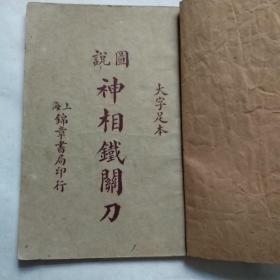 大字足本
圖說
神相鐵關刀
上海
錦章書局印行